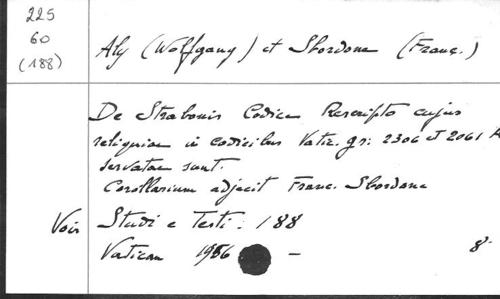 225
60
(188)
Aly (Wolfgang) et Sbordone (Franç.)
De Strabonis Codice Rescripto cujus
reliquiae in codicibus Vatic. gr. 2306 et 2061 A
servatae sunt.
Corollarium adjecit Franc. Sbordone
Voir Studi e Testi. 188
Vatican 1956 — 8°